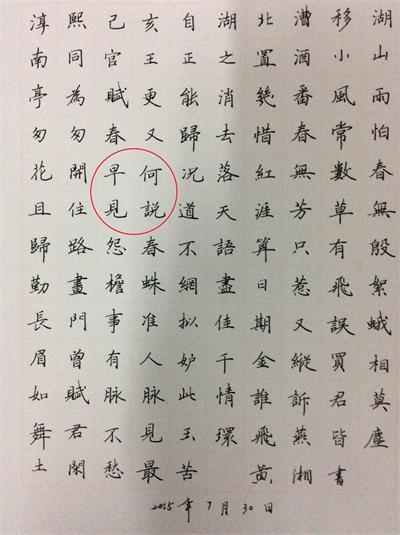 淳熙己亥自湖北漕移湖
南同官王正之置酒小山
亭為賦更能消幾番風雨
匆匆春又歸去惜春常怕
花開早何況落紅無數春
且住見説道天涯芳草無
歸路怨春不語算只有殷
勤畫檐蛛網盡日惹飛絮
長門事准拟佳期又誤蛾
眉曾有人妒千金縱買相
如賦脈脈此情誰訴君莫
舞君不見玉環飛燕皆塵
土閑愁最苦 黄湘書
2015年7月30日